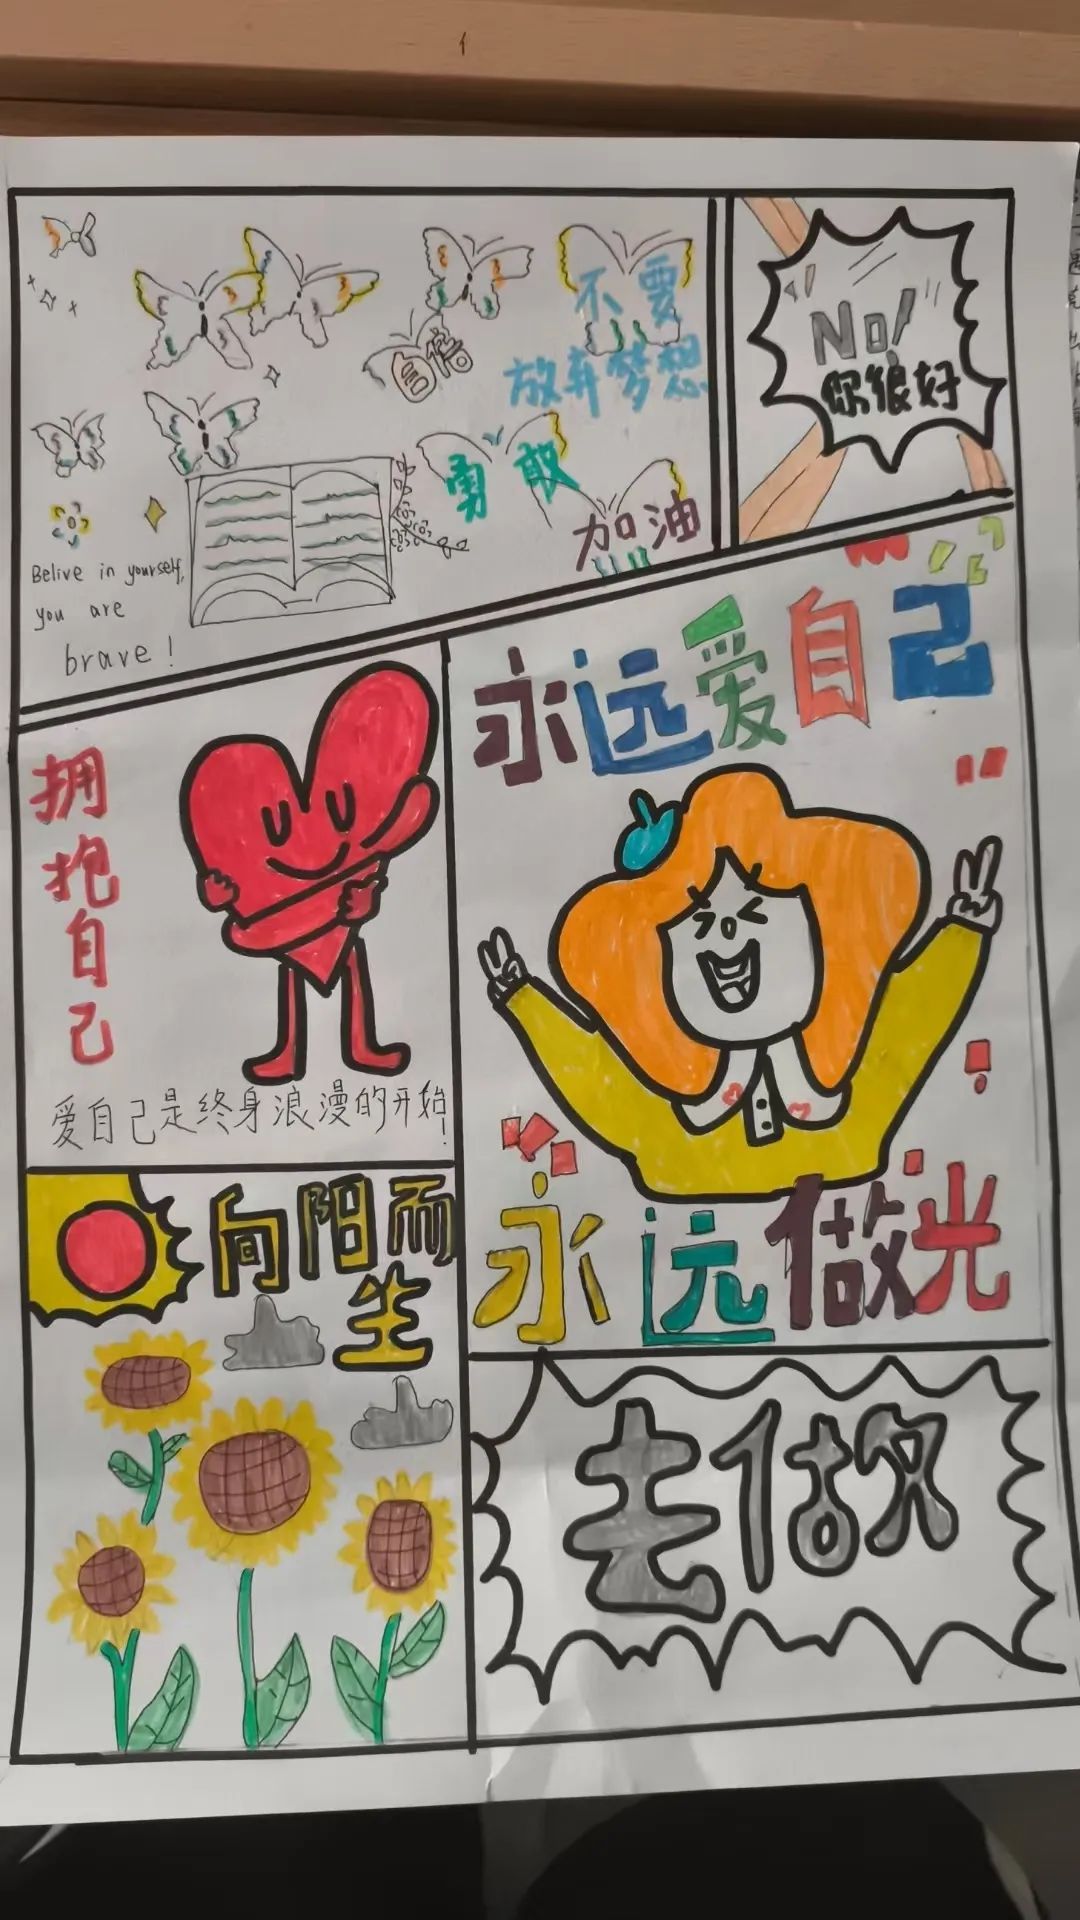 不要
放弃梦想
自信
勇敢
加油
Belive in yourself,
you are
brave!
No!
你很好
拥抱自己
爱自己是终身浪漫的开始!
永远爱自己
永远做光
向阳而
生
去做